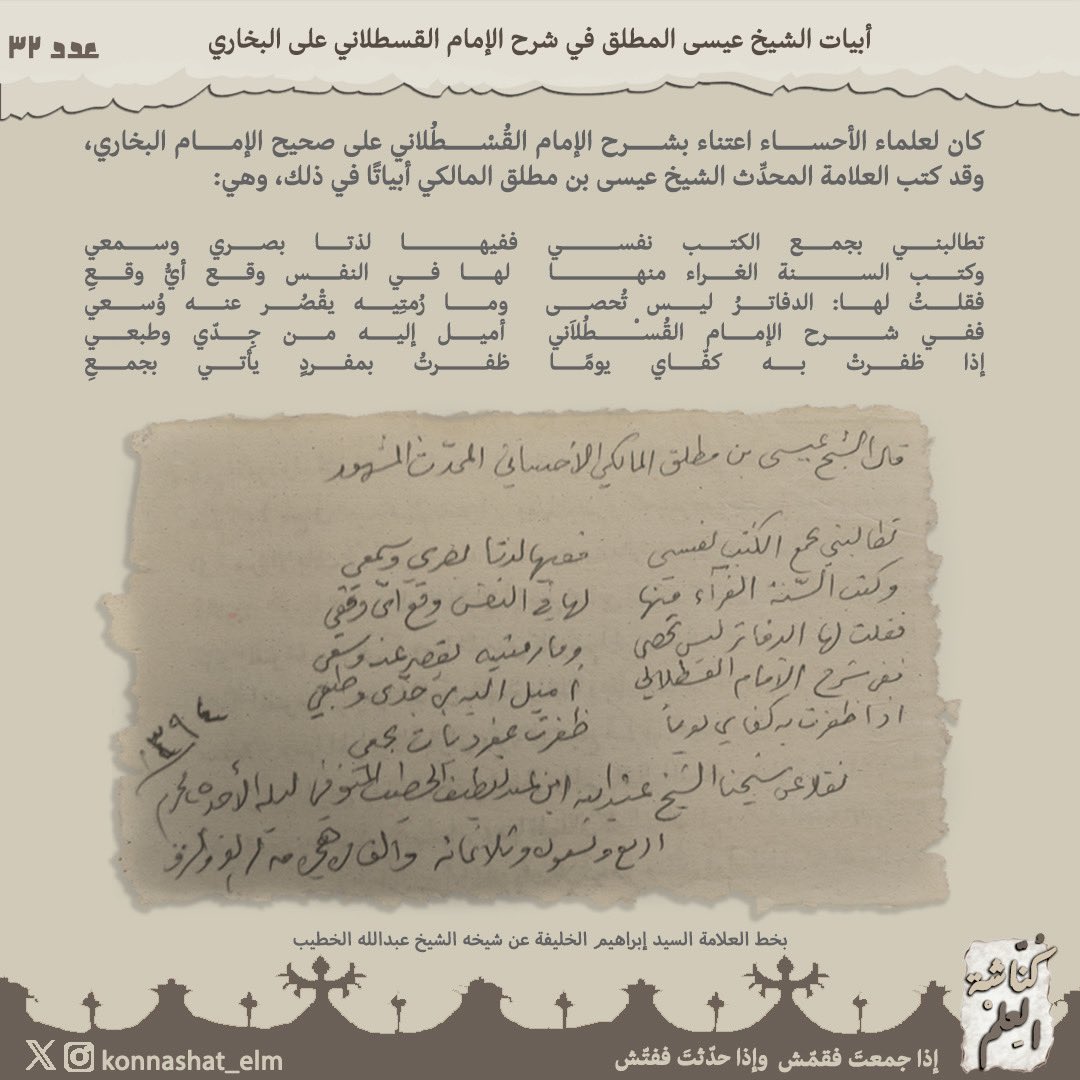 أبيات الشيخ عيسى المطلق في شرح الإمام القسطلاني على البخاري
عدد ٣٢
كان لعلماء الأحساء اعتناء بشرح الإمام القُسْطُلاني على صحيح الإمام البخاري،
وقد كتب العلامة المحدِّث الشيخ عيسى بن مطلق المالكي أبياتًا في ذلك، وهي:
تطالبني بجمع الكتب نفسي ففيها لذتا بصري وسمعي
وكتب السنة الغراء منها لها في النفس وقع أيُّ وقعِ
فقلتُ لها: الدفاترُ ليس تُحصى وما رُمتِيه يقْصُر عنه وُسعي
ففي شرح الإمام القُسْطُلاَني أميل إليه من جِدّي وطبعي
إذا ظفرتْ به كفّاي يومًا ظفرتُ بمفردٍ يأتي بجمعِ
قال الشيخ عيسى بن مطلق المالكي الأحسائي المحدّث المشهور
تطالبني بجمع الكتب نفسي ففيها لذتا بصري وسمعي
وكتب السّنة الغرآء منها لها في النفس وقع أيّ وقعي
فقلت لها الدفاتر ليس تحصى وما رمتيه يقصر عنه وسعي
ففي شرح الإمام القسطلاني أميل اليه من جدّي وطبعي
اذا ظفرت به كفاي يوماً ظفرت بمفرد يات بجمعي
١٣٩٤
نقلا عن شيخنا الشيخ عبدالله ابن عبداللطيف الخطيب المتوفى ليلة الأحد محرم
اربع وتسعون وثلاثمائه والف هجري
بخط العلامة السيد إبراهيم الخليفة عن شيخه الشيخ عبدالله الخطيب
كُنّاشة
العِلم
إذا جمعتَ فقمّش وإذا حدّثتَ ففتّش
konnashat_elm